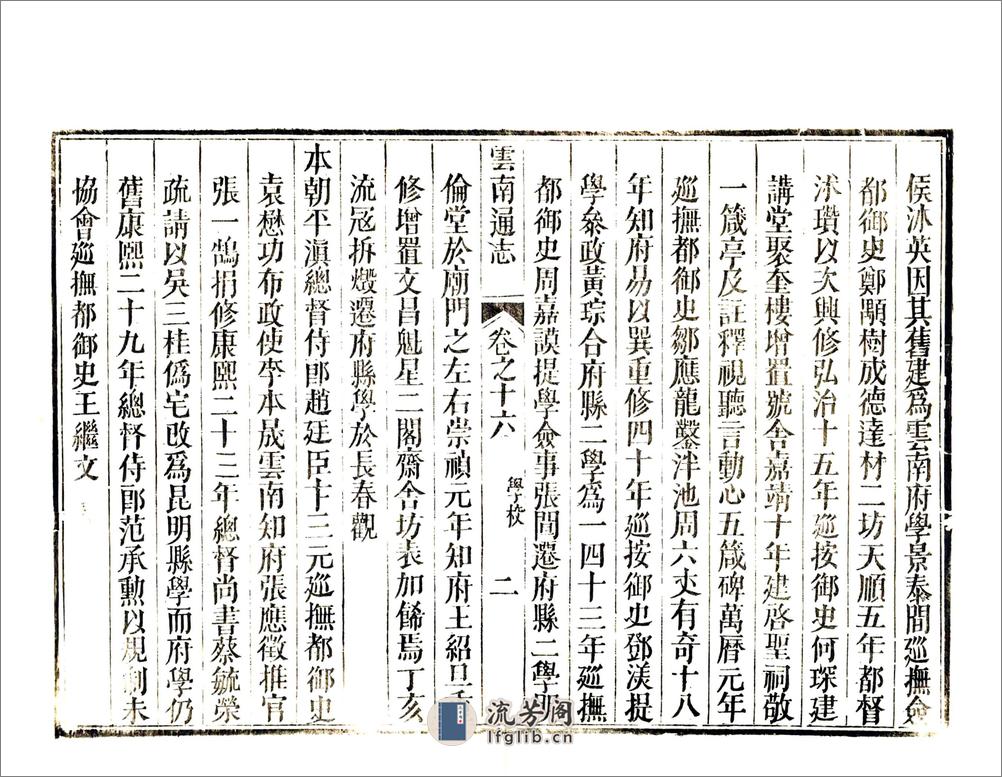 侯沐英因其舊建為雲南府學景泰間巡撫僉
都御史鄭顒樹成德達材二坊天順五年都督
沐瓚以次興修弘治十五年巡按御史何琛建
講堂聚奎樓增置號舍嘉靖十年建啓聖祠敬
一箴亭及註釋視聽言動心五箴碑萬曆元年
巡撫都御史鄒應龍鑿泮池周六丈有奇十八
年知府易以巽重修四十年巡按御史鄧渼提
學叅政黃琮合府縣二學為一四十三年巡撫
都御史周嘉謨提學僉事張聞遷府縣二學
雲南通志
卷之十六
學校
二
倫堂於廟門之左右崇禎元年知府王紹旦
修增置文昌魁星二閣齋舍坊表加餙焉丁亥
流冦拆燬遷府縣學於長春觀
本朝平滇總督侍郎趙廷臣十三元巡撫都御史
袁懋功布政使李本晟雲南知府張應徵推官
張一鵠捐修康熙二十三年總督尚書蔡毓榮
疏請以吳三桂偽宅改為昆明縣學而府學仍
舊康熙二十九年總督侍郎范承勲以規制未
協會巡撫都御史王繼文
流芳阁
lfglib.cn